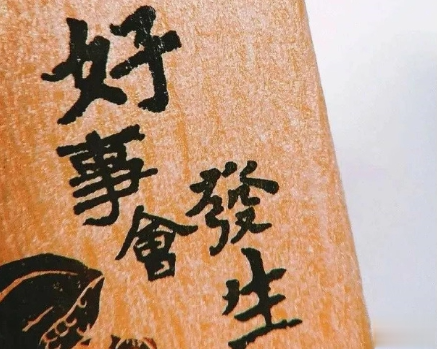 好事會
發生